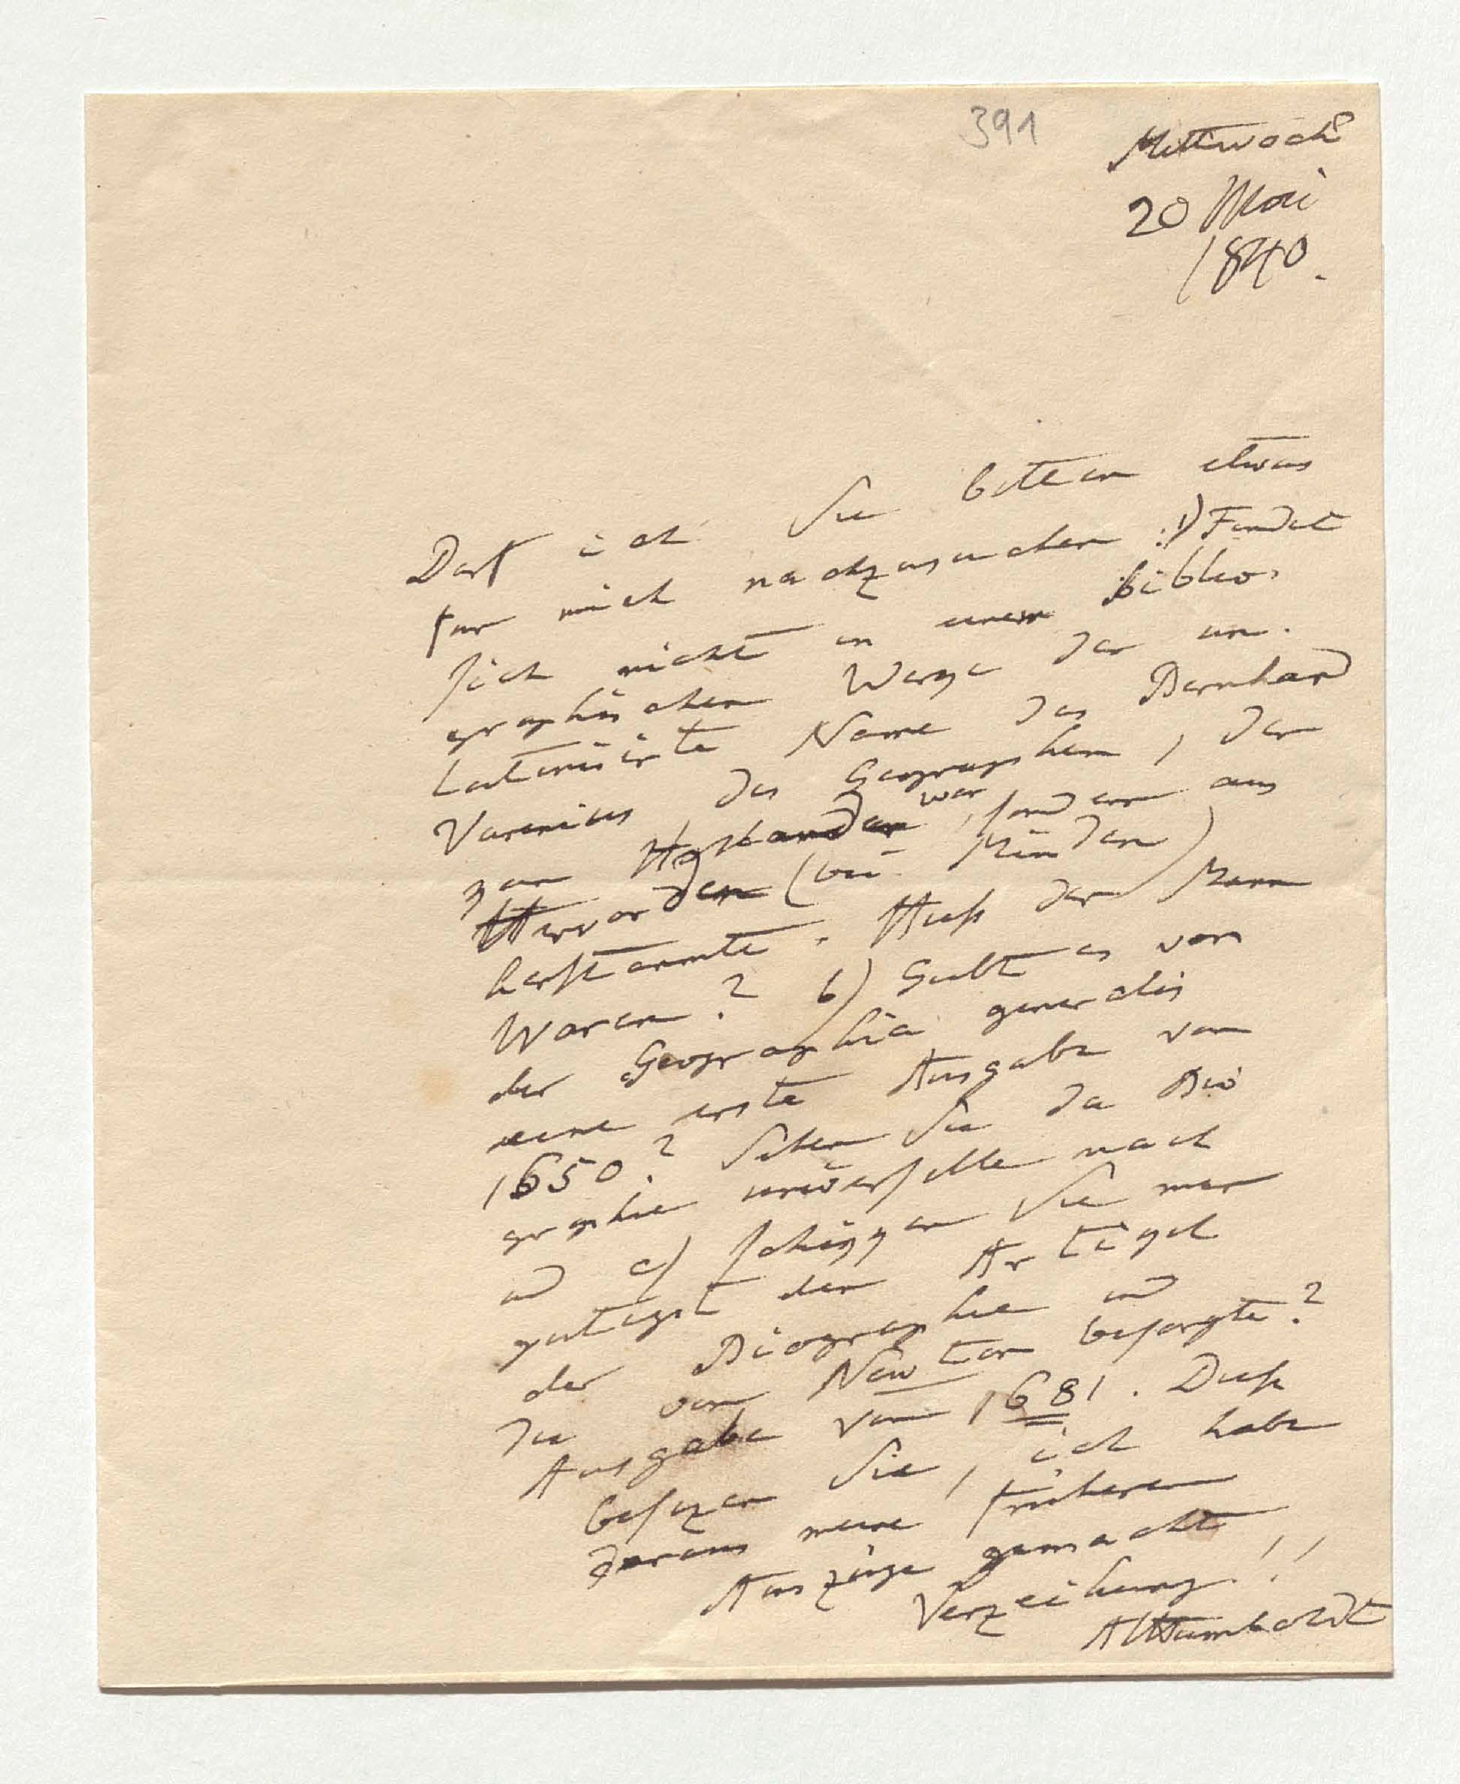 391
Mittwoch
20 Mai
1840.
Darf ich Sie bitten etwas
fur mich nachzusuchen :1) Findet
sich nicht in einem biblio-
graphischen Werge der un-
latinisirte Name des Bernhard
Varenius, des Geographen, der
gar Hollander war, sondern aus
Hervorden (bei Minden)
herstammte. Hieß der Mann
Waren? b) Giebt es von
der Geographia generalis
eine erste Ausgabe von
1650? Sehen Sie da Bio
graphie universelle nach
und c) schiggen Sie mir
gutigst den Artigel
der Biographie und
die von Newton besorgte?
Ausgabe von 1681. Diese
besizen Sie, ich habe
daraus meine früheren
Auszüge gemacht
Verzeihung!!
AlHumboldt